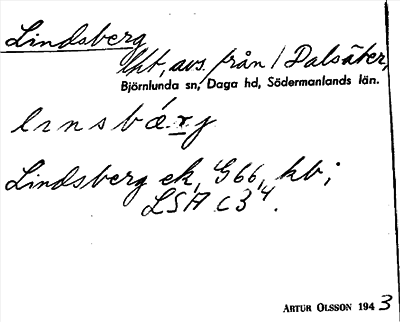 Lindsberg
lht, avs. från 1 Dalsäter,
Björnlunda sn, Daga hd, Södermanlands län.
linsbárj
Lindsberg ek, G66, kb;
LSA C3⁴.
ARTUR OLSSON 1943